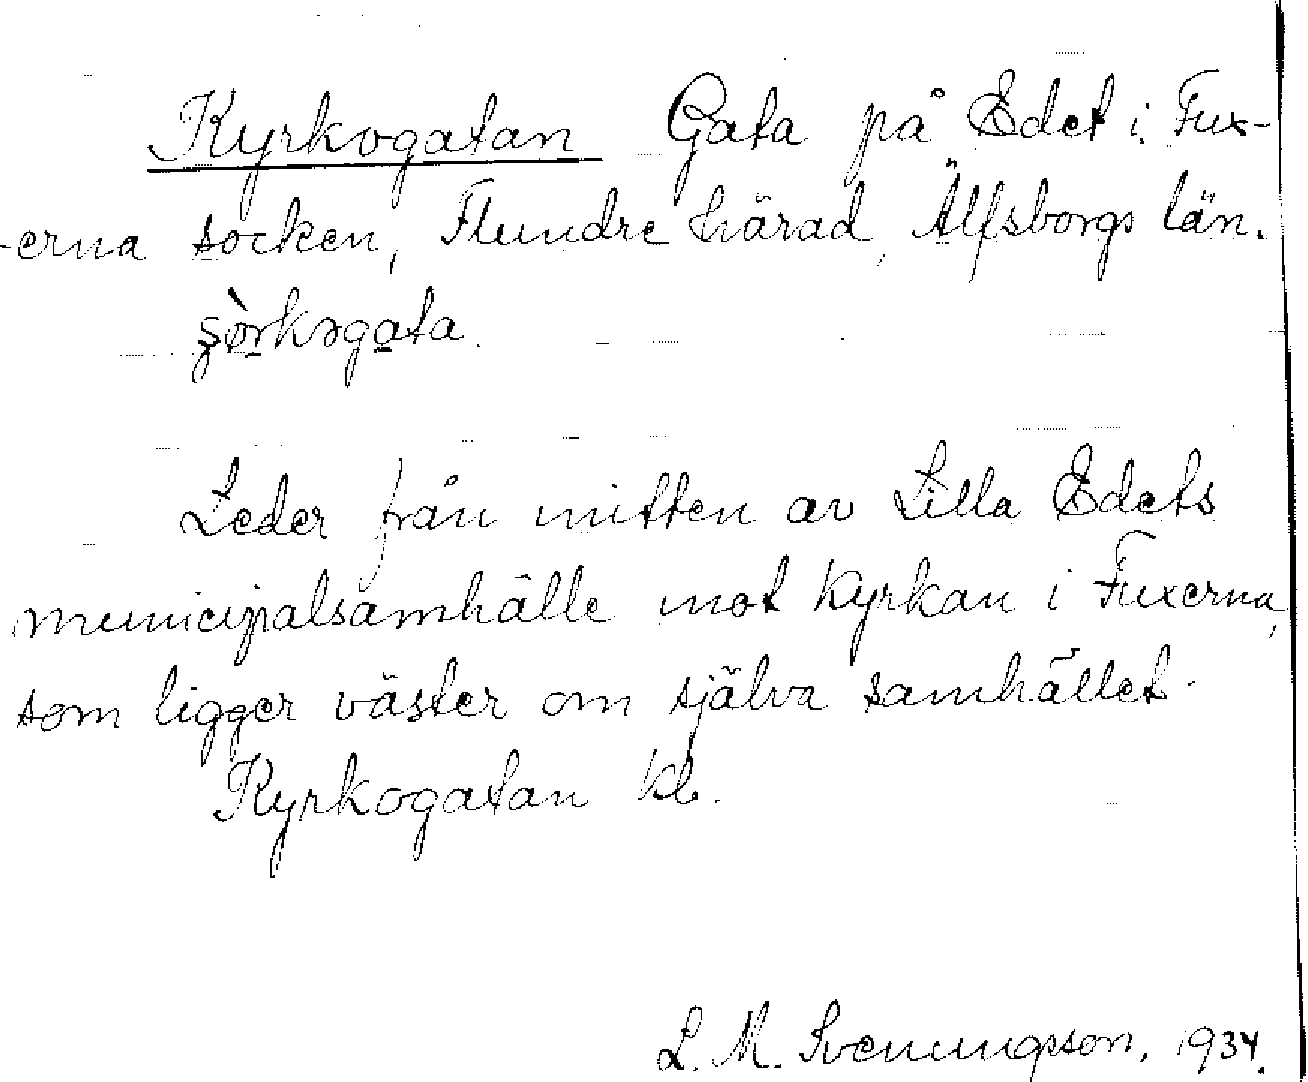 Kyrkogatan Gata på Edet i Fux-
-erna socken, Flundre härad, Älfsborgs län.
Leder från mitten av Lilla Edets
municipalsamhälle mot kyrkan i Fuxerna,
som ligger väster om själva samhället.
Kyrkogatan kb.
L. M. Svenungsson, 1934.